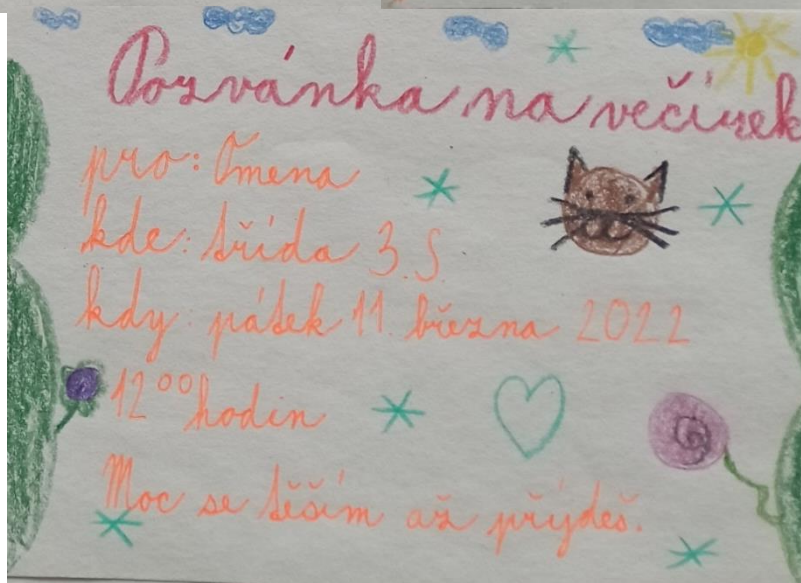 Pozvánka na večírek
pro: Omena
kde: třída 3.S.
kdy: pátek 11. března 2022
12⁰⁰ hodin
Moc se těším až přýdeš.